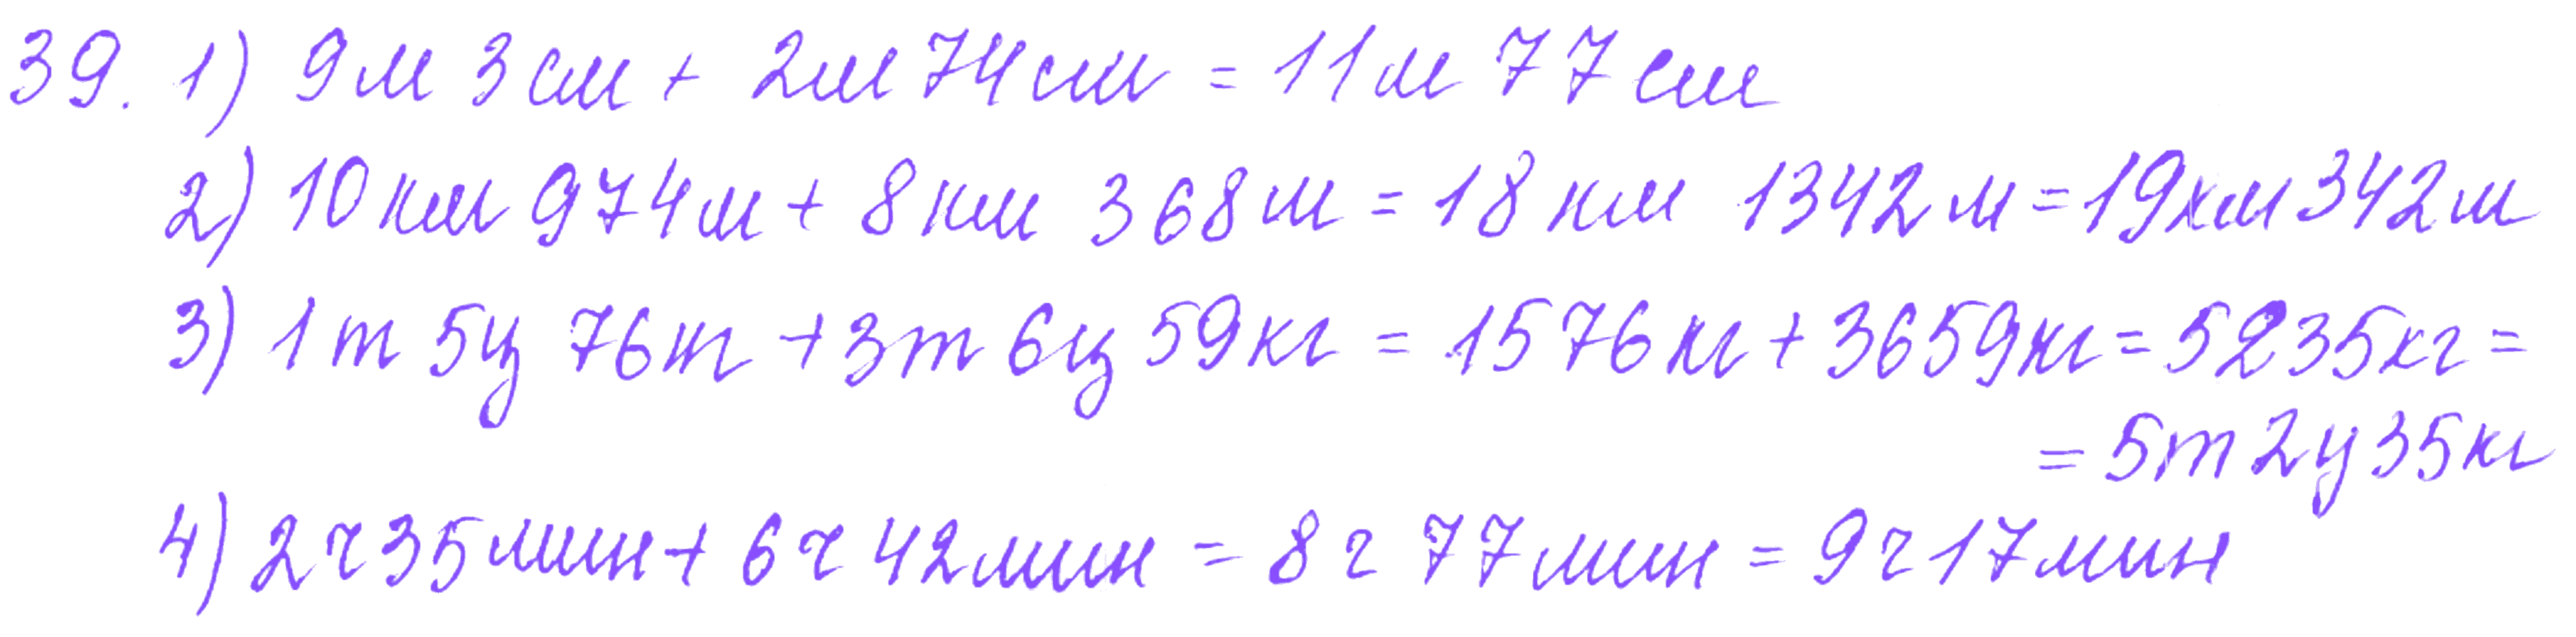 39. 1) 9м 3см + 2м 74см = 11м 77см
2) 10км 974м + 8км 368м = 18км 1342м = 19км 342м
3) 1т 5ц 76кг + 3т 6ц 59кг = 1576кг + 3659кг = 5235кг =
= 5т 2ц 35кг
4) 2ч 35мин + 6ч 42мин = 8ч 77мин = 9ч 17мин